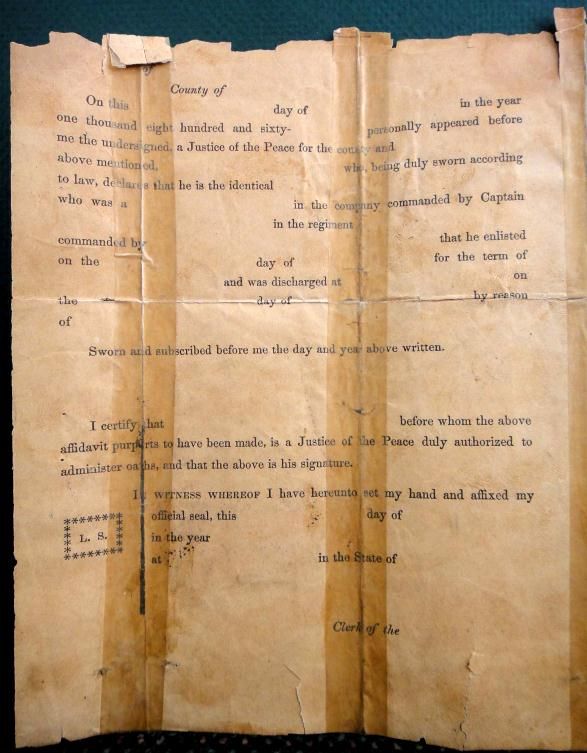 of
County of
On this day of in the year
one thousand eight hundred and sixty- personally appeared before
me the undersigned, a Justice of the Peace for the county and
above mentioned, who, being duly sworn according
to law, declares that he is the identical
who was a in the company commanded by Captain
in the regiment
commanded by that he enlisted
on the day of for the term of
and was discharged at on
the day of by reason
of
Sworn and subscribed before me the day and year above written.
I certify that before whom the above
affidavit purports to have been made, is a Justice of the Peace duly authorized to
administer oaths, and that the above is his signature.
IN WITNESS WHEREOF I have hereunto set my hand and affixed my
official seal, this day of
L. S. in the year
at in the State of
Clerk of the